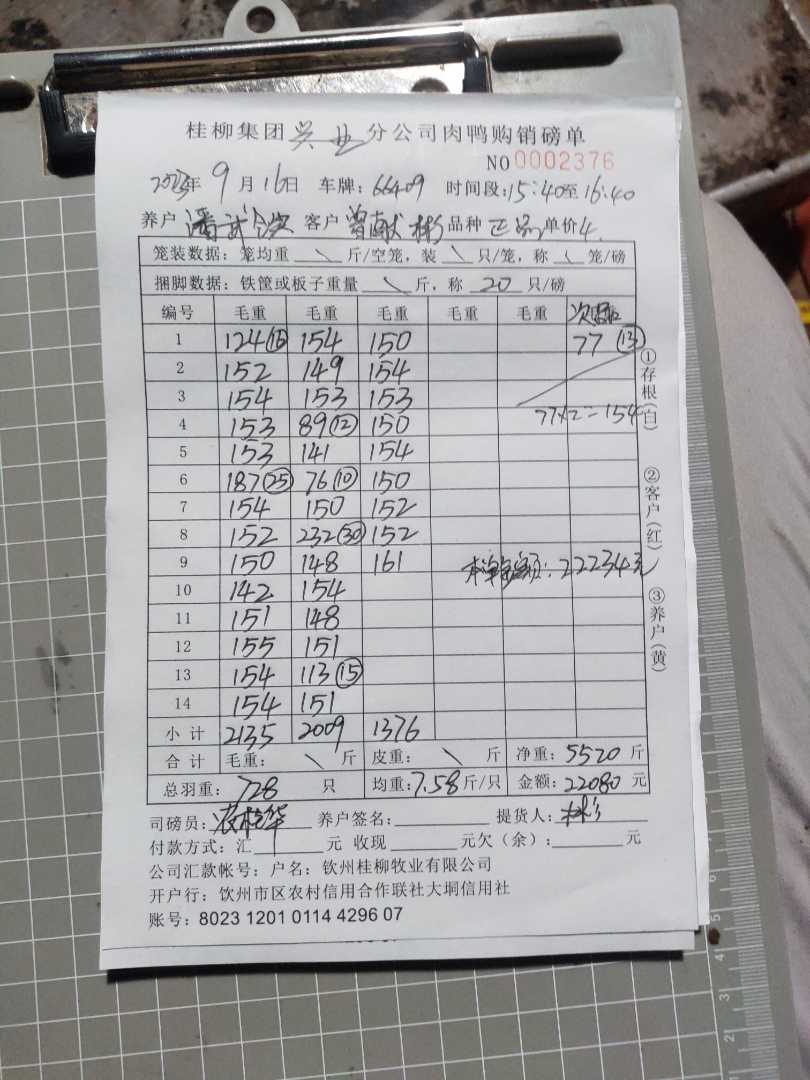 桂柳集团兴业分公司肉鸭购销磅单
NO 0002376
2023年 9 月 16日 车牌: 66409 时间段: 15:40至16:40
养户 潘武 客户 曾献彬 品种 正品 单价 4.
笼装数据: 笼均重 \ 斤/空笼, 装 \ 只/笼, 称 \ 笼/磅
捆脚数据: 铁筐或板子重量 \ 斤, 称 20 只/磅
编号 毛重 毛重 毛重 毛重 毛重 次品
1 124(16) 154 150 77 (13)
2 152 149 154
3 154 153 153
4 153 89(12) 150 77×2=154
5 153 141 154
6 187(25) 76(10) 150
7 154 150 152
8 152 232(30) 152
9 150 148 161 本单金额: 22234元
10 142 154
11 151 148
12 155 151
13 154 113(15)
14 154 151
小计 2135 2009 1376
合计 毛重: \ 斤 皮重: \ 斤 净重: 5520 斤
总羽重: 728 只 均重: 7.58 斤/只 金额: 22080 元
司磅员: 养户签名: 提货人: 彬
付款方式: 汇 元 收现 元欠(余): 元
公司汇款帐号: 户名: 钦州桂柳牧业有限公司
开户行: 钦州市区农村信用合作联社大垌信用社
账号: 8023 1201 0114 4296 07
①存根(白)
②客户(红)
③养户(黄)
5
4
3
2